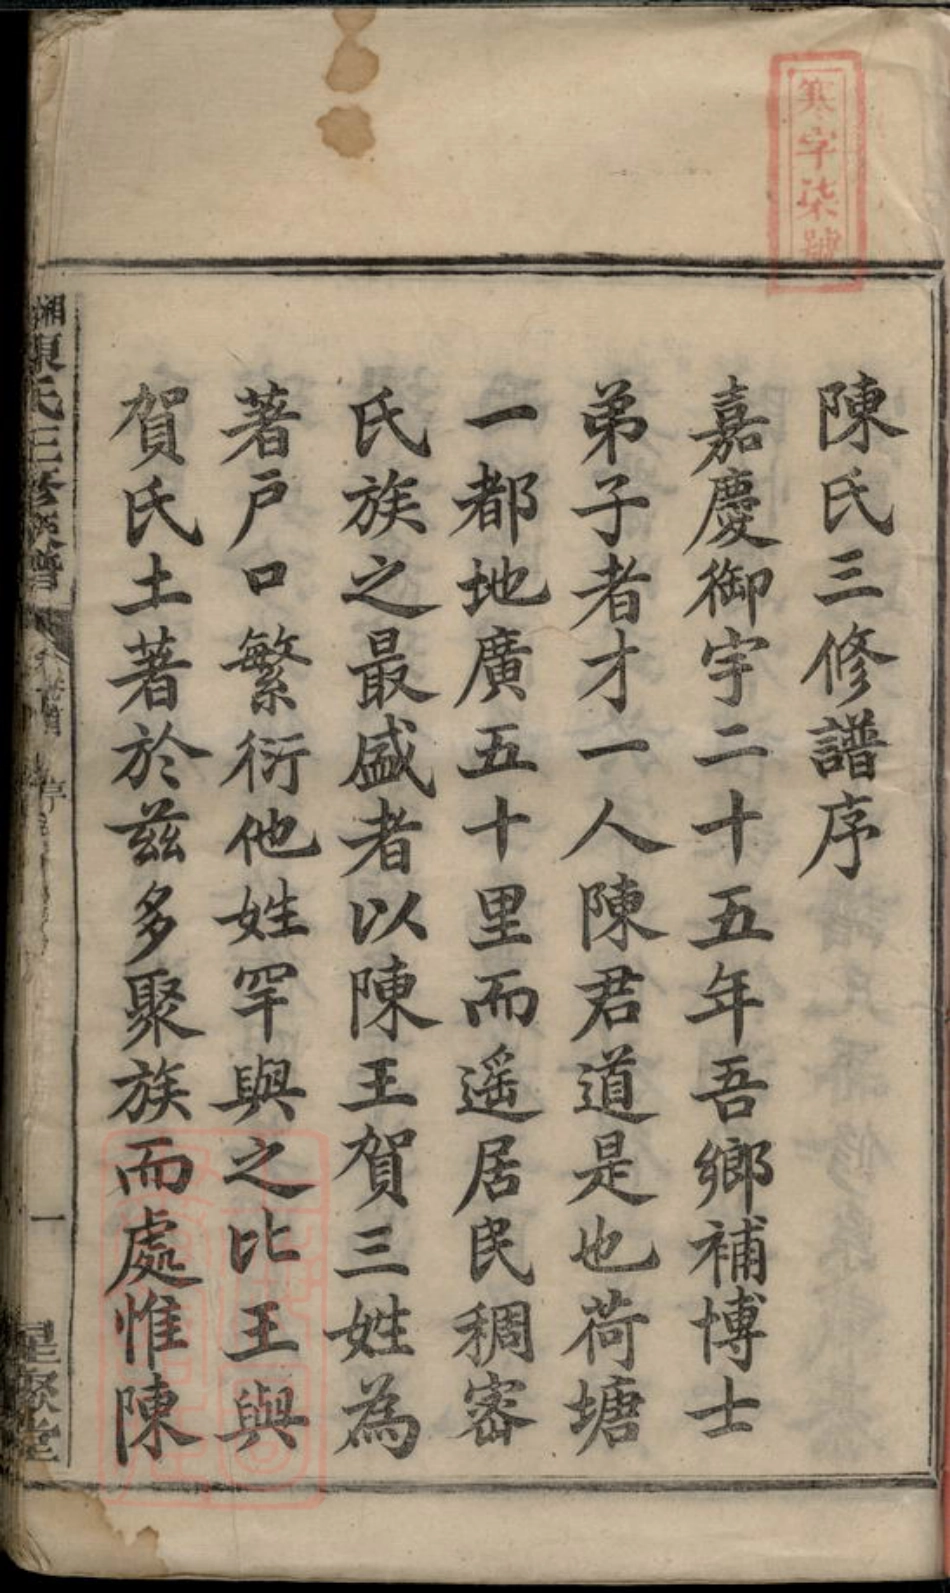 寒字柒號
陳氏三修譜序
嘉慶御宇二十五年吾鄉補博士
弟子者才一人陳君道是也荷塘
一都地廣五十里而遥居民稠宻
氏族之最盛者以陳王賀三姓為
著户口繁衍他姓罕與之比王與
賀氏土著於兹多聚族而處惟陳
湘陳氏三修族譜
卷首
序
一
星聚堂